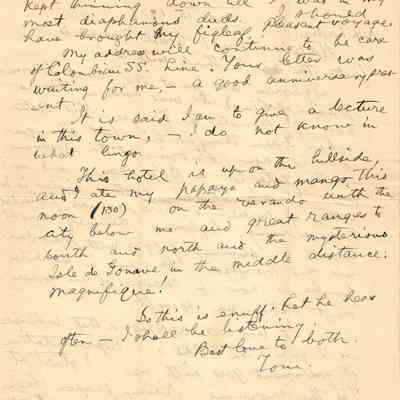 kept thinning down till I was in my
most diaphanous duds. I should
have brought my figleaf. Pleasant voyage.
My address will continue to be care
of Colombian SS. Line. Your letter was
waiting for me, – a good anniversary pres-
ent.
It is said I am to give a lecture
in this town, – I do not know in
what lingo.
This hotel is up on the hillside,
and I ate my papaya and mango this
noon (130) on the veranda with the
city below me and great ranges to
south and north and the mysterious
Isle de Gonave in the middle distance:
magnifique!
So this is enuff. Let me hear
often – I shall be listening.
Best love to both.
Tom.